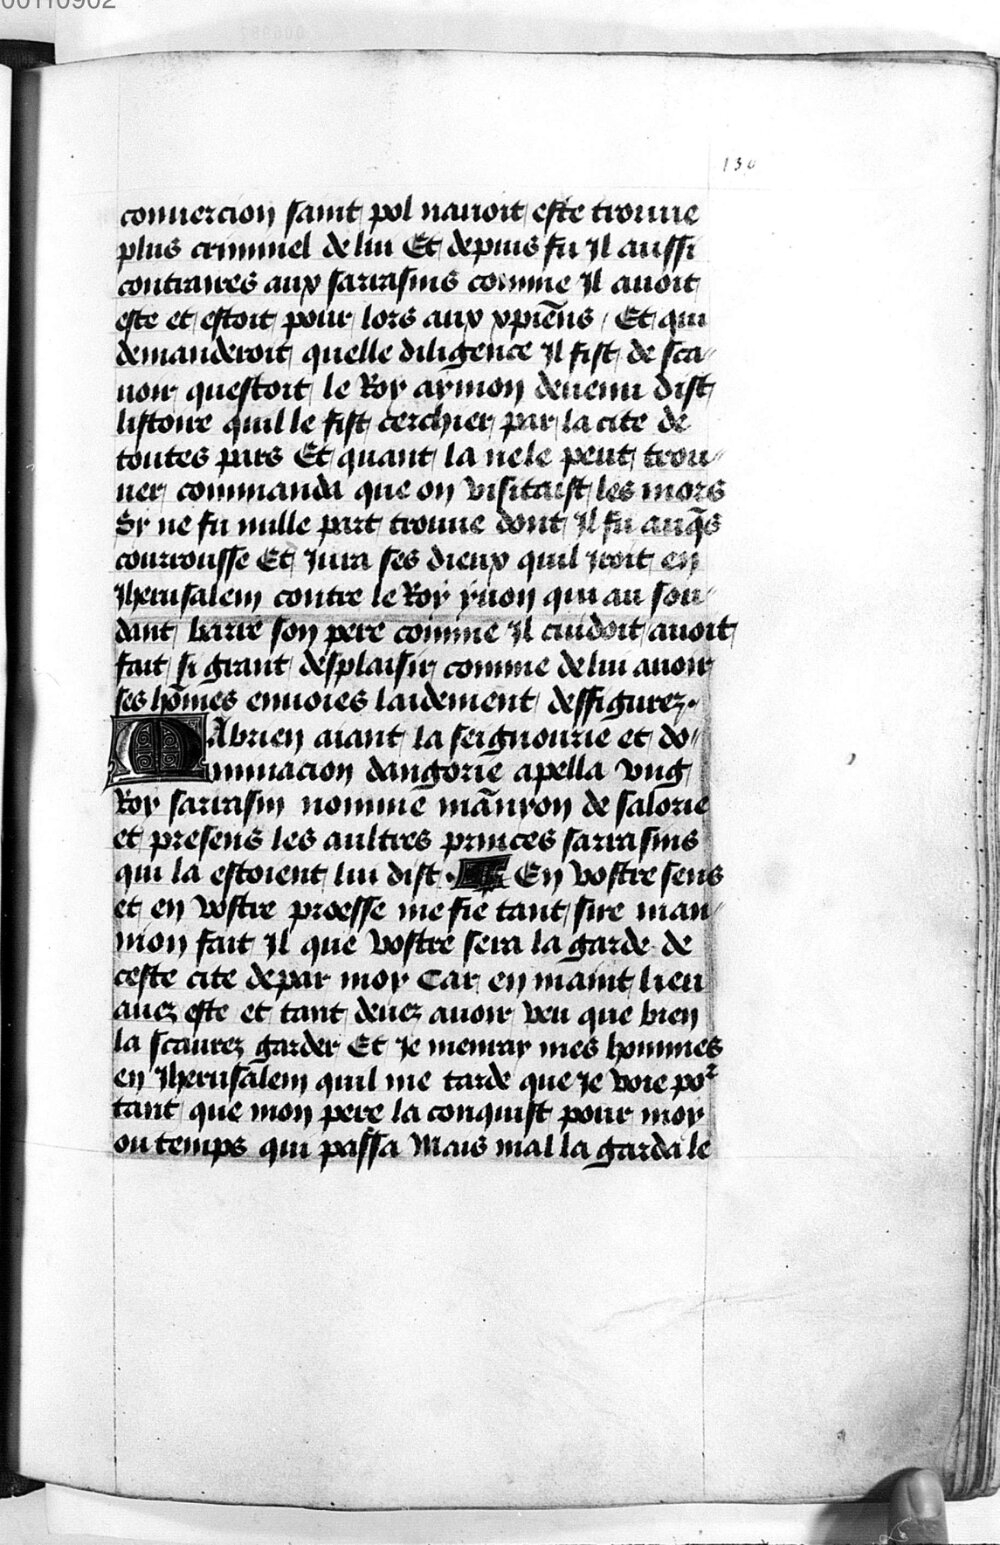 00110902
130
conuercion saint pol nauoit este trouue
plus criminel de lui Et depuis fu Il aussi
contraires aux sarrasins comme Il auoit
este et estoit pour lors aux xpiẽns / Et qui
demanderoit quelle diligence Il fist de sca-
uoir questoit le Roy aymon deuenu dist
listoire quil le fist cerchier par la cite de
toutes pars Et quant la ne le peut trou-
uer commanda que on visitast les mors
Sy ne fu nulle part trouue dont Il fu auq̃s
courrousse Et Jura ses dieux quil Iroit en
Jherusalem contre le Roy yuon qui au sou-
dant barre son pere comme Il cuidoit auoit
fait si grant desplaisir comme de lui auoir
ses hõmes enuoies laidement deffigurez.
MAbrien aiant la seignourie et do-
minacion dangorie apella vng
Roy sarrasin nomme mãuyon de salorie
et presens les aultres princes sarrasins
qui la estoient lui dist. En vostre sens
et en vostre proesse me fie tant sire man-
mon fait Il que vostre sera la garde de
ceste cite de par moy Car en maint lieu
auez este et tant deuez auoir veu que bien
la scaurez garder Et Je menray mes hommes
en Jherusalem quil me tarde que Je voie poʳ
tant que mon pere la conquist pour moy
ou temps qui passa Mais mal la garda le